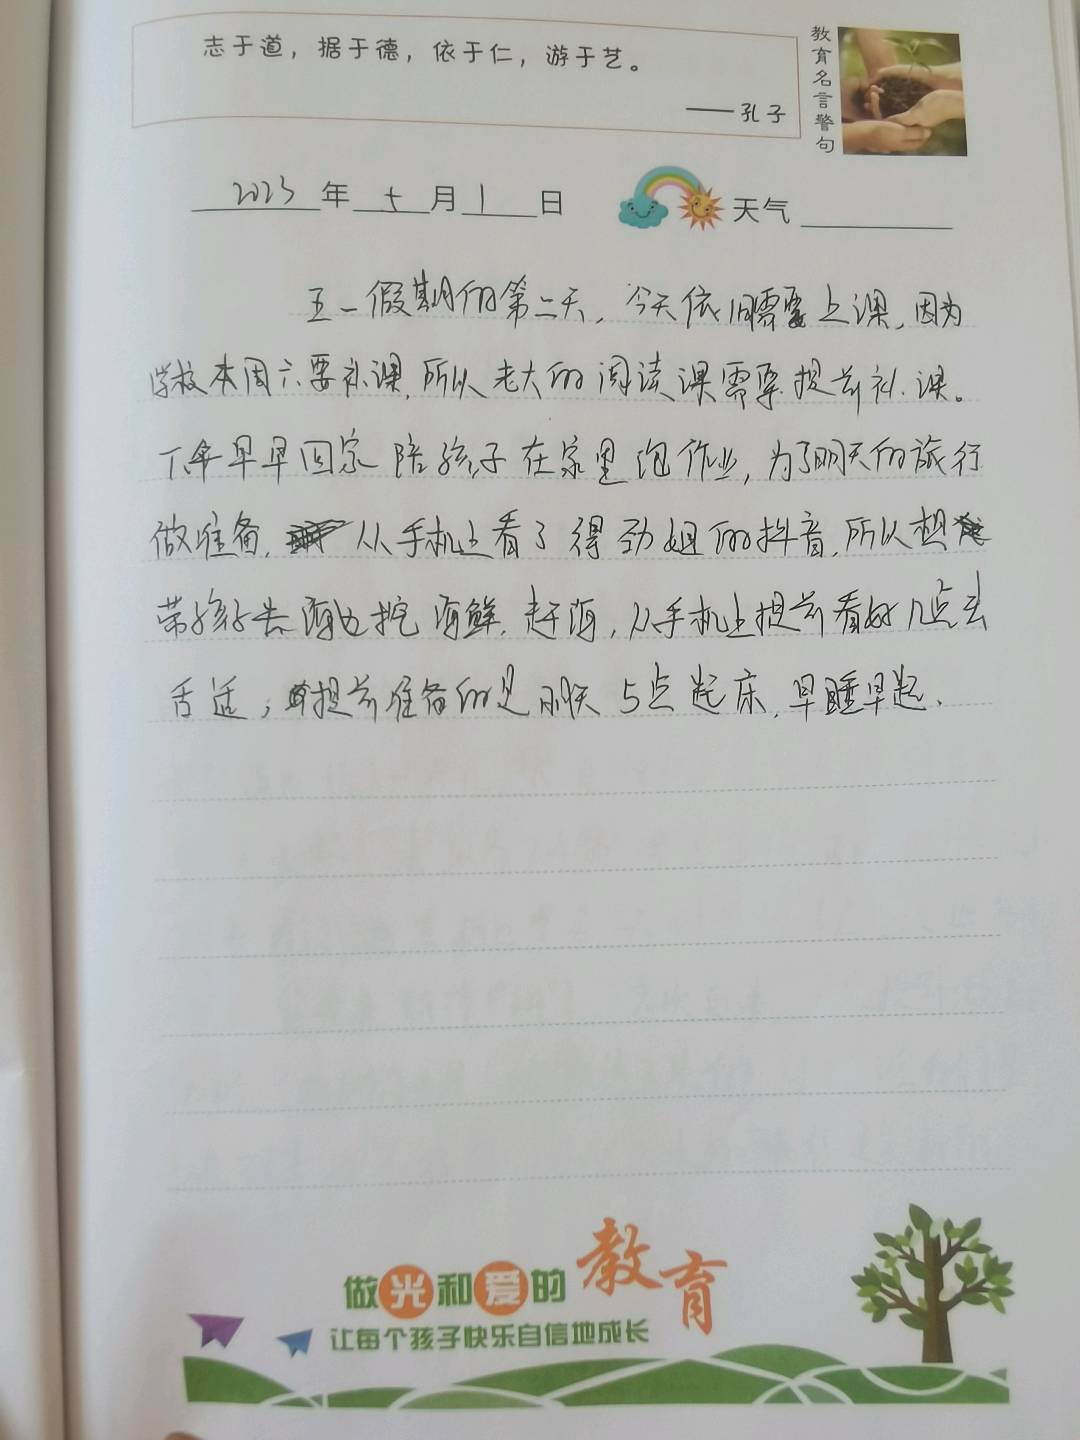 志于道，据于德，依于仁，游于艺。
——孔子
教育名言警句
2023年5月1日 天气
五一假期的第二天，今天依旧需要上课，因为
学校本周六要补课，所以老大的阅读课需要提前补课。
下午早早回家陪孩子在家里写作业，为了明天的旅行
做准备，从手机上看了得劲姐的抖音，所以想
带孩子去海边挖海鲜，赶海，从手机上提前看好几点去
合适，提前准备的是明天5点起床，早睡早起、
做光和爱的教育
让每个孩子快乐自信地成长